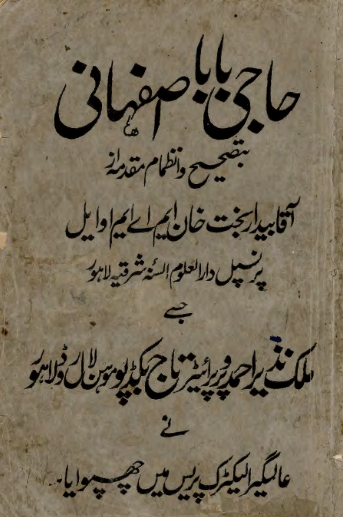 حاجی بابا اصفہانی
بتصحیح و انظمام مقدمہ از
آقا بیدار بخت خان ایم اے ایم او ایل
پرنسپل دارالعلوم السنہ شرقیہ لاہور
جسے
ملک نذیر احمد پروپرائیٹر تاج بکڈپو موہن لال روڈ لاہور
نے
عالمگیر الیکٹرک پریس میں چھپوایا۔